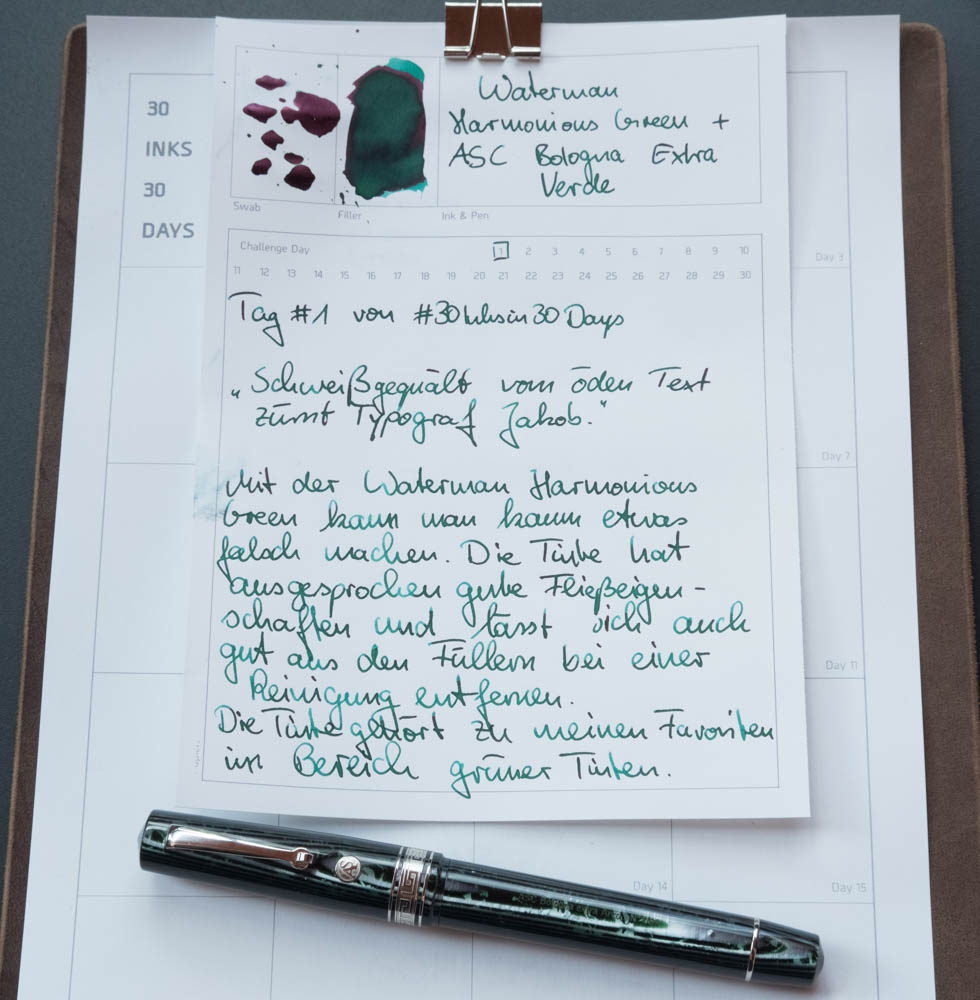 30
INKS
30
DAYS
Waterman
Harmonious Green +
ASC Bologna Extra
Verde
Swab
Filler
Ink & Pen
Challenge Day
1 2 3 4 5 6 7 8 9 10
11 12 13 14 15 16 17 18 19 20 21 22 23 24 25 26 27 28 29 30
Tag #1 von #30Inksin30Days
„Schweißgequält vom öden Text
zürnt Typograf Jakob."
Mit der Waterman Harmonious
Green kann man kaum etwas
falsch machen. Die Tinte hat
ausgesprochen gute Fließeigen-
schaften und lässt sich auch
gut aus den Füllern bei einer
Reinigung entfernen.
Die Tinte gehört zu meinen Favoriten
im Bereich grüner Tinten.
Day 3
Day 7
Day 11
Day 14
Day 15